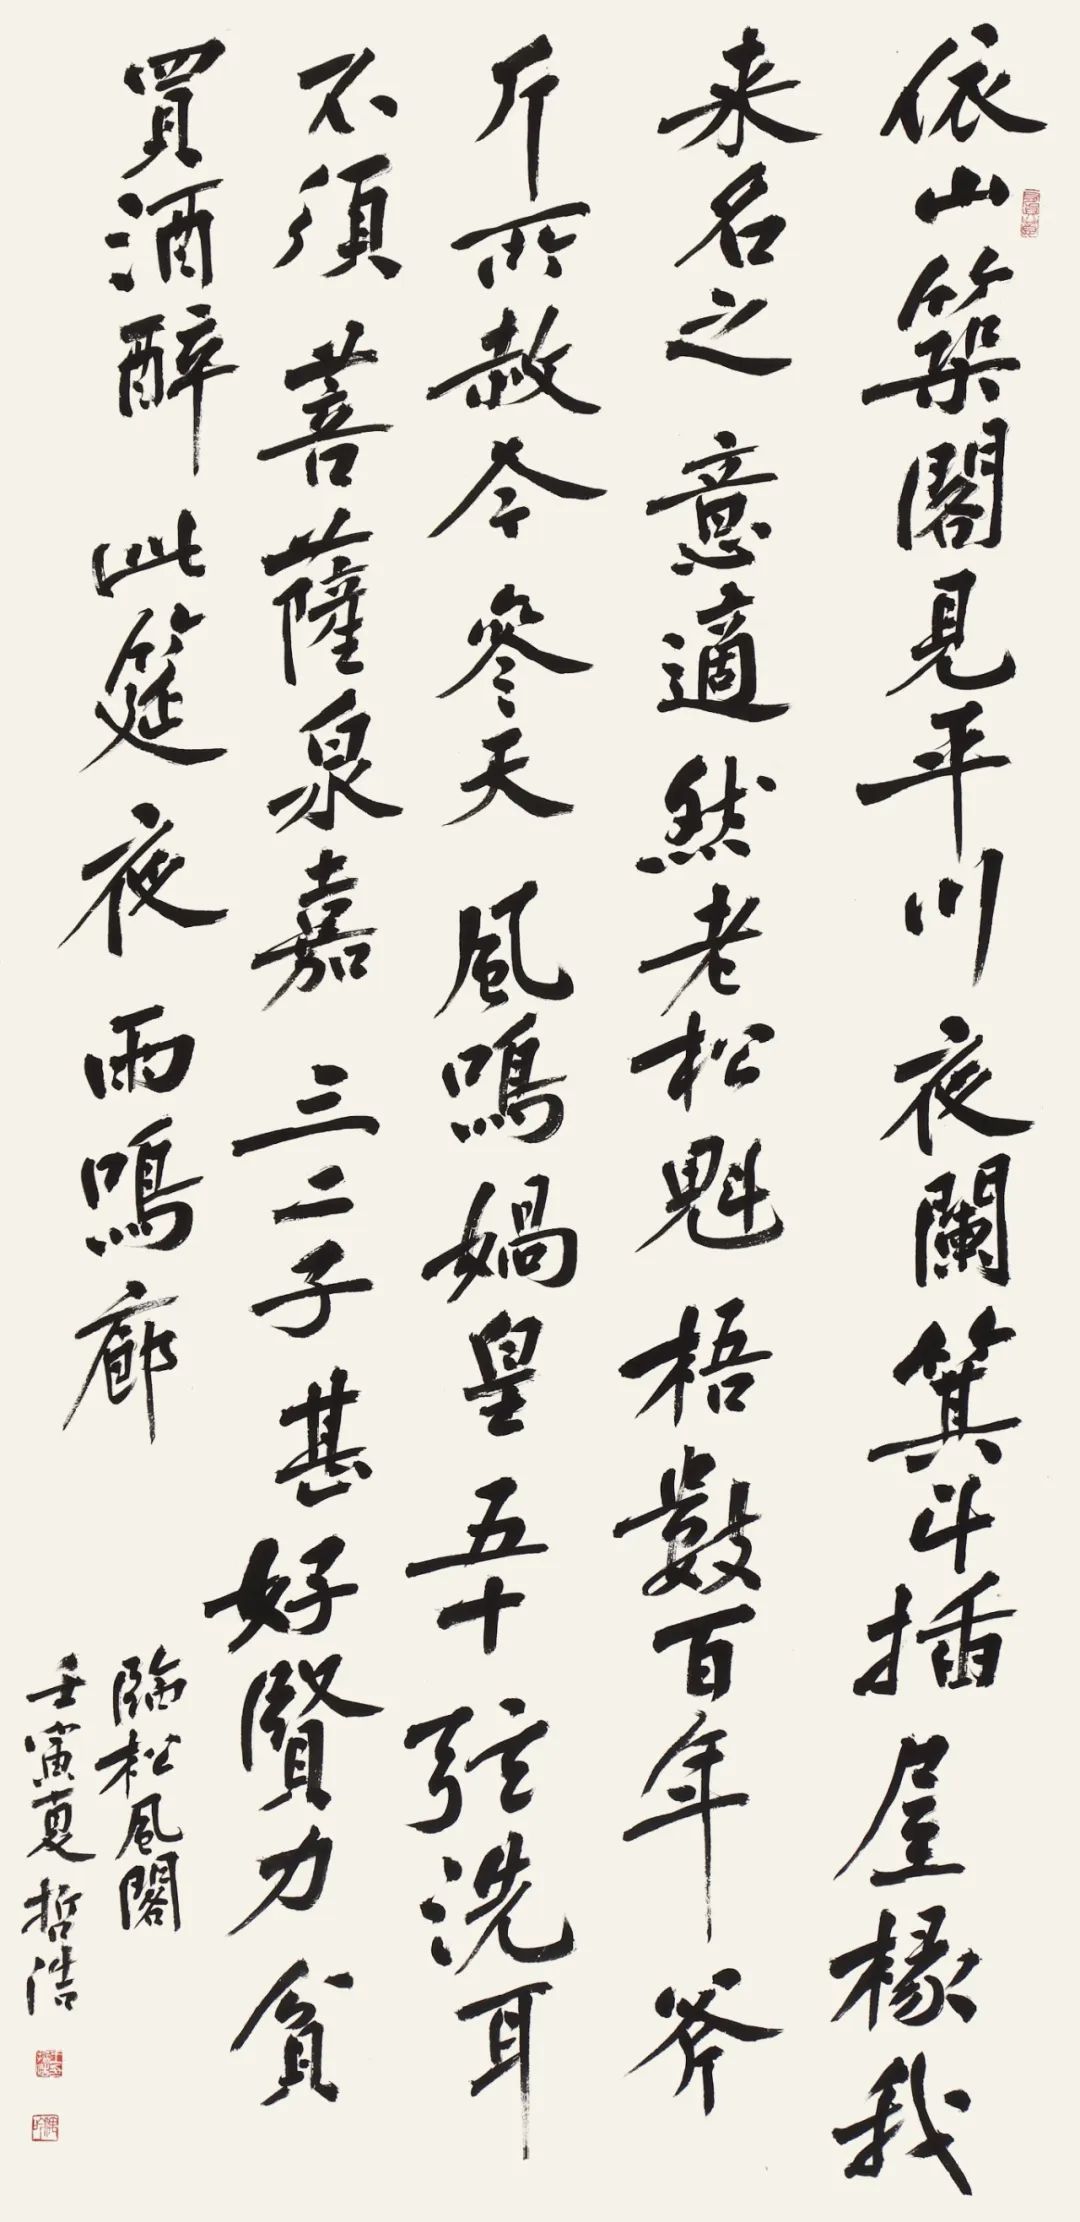 依山築閣見平川夜闌箕斗插屋椽我
来名之意適然老松魁梧數百年斧
斤所赦今參天風鳴媧皇五十弦洗耳
不須菩薩泉嘉三二子甚好賢力貧
買酒醉此筵夜雨鳴廊
臨松風閣
壬寅夏哲浩